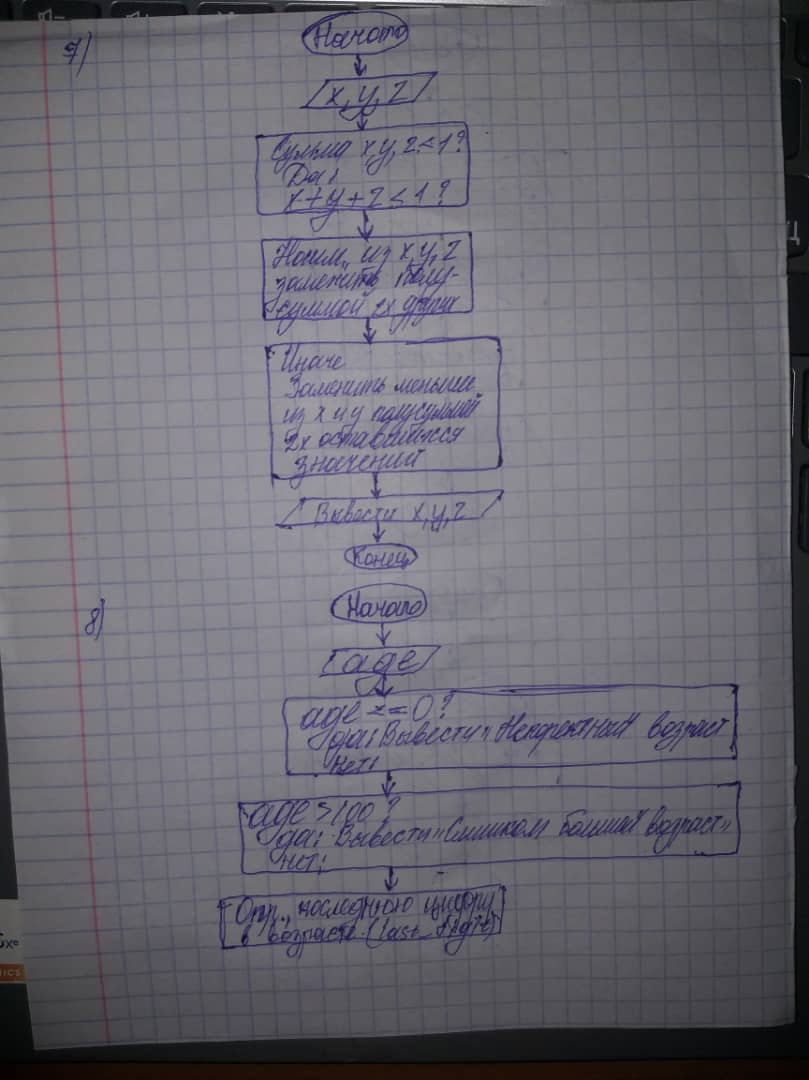 7)
Начало
x, y, z
Сумма x, y, z < 1?
Да:
x + y + z < 1?
Наим. из x, y, z
заменить полу-
суммой 2х других
Иначе
Заменить меньшее
из x и y полусуммой
2х оставшихся
значений
Вывести x, y, z
Конец
8)
Начало
age
age <= 0?
да: Вывести "Некоректный возраст
нет:
age > 100?
да: Вывести "Слишком большой возраст"
нет:
Опр. последнюю цифру
в возрасте (last_digit)